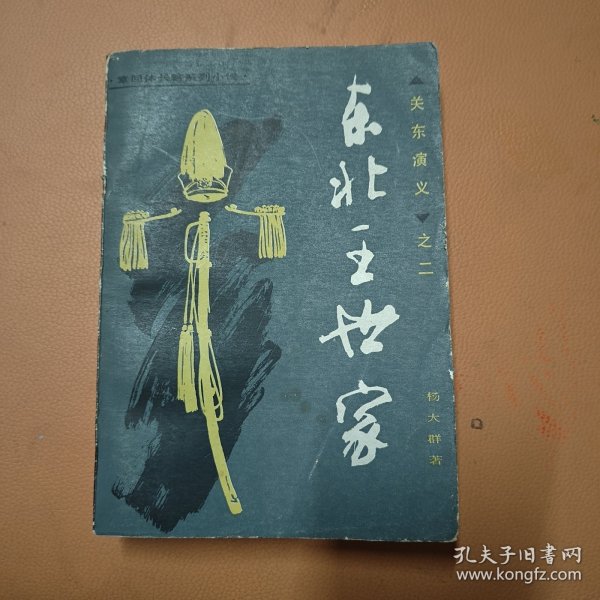 章回体长篇系列小说
东北王世家
关东演义
之二
杨大群著
孔夫子旧书网
www.kongfz.com